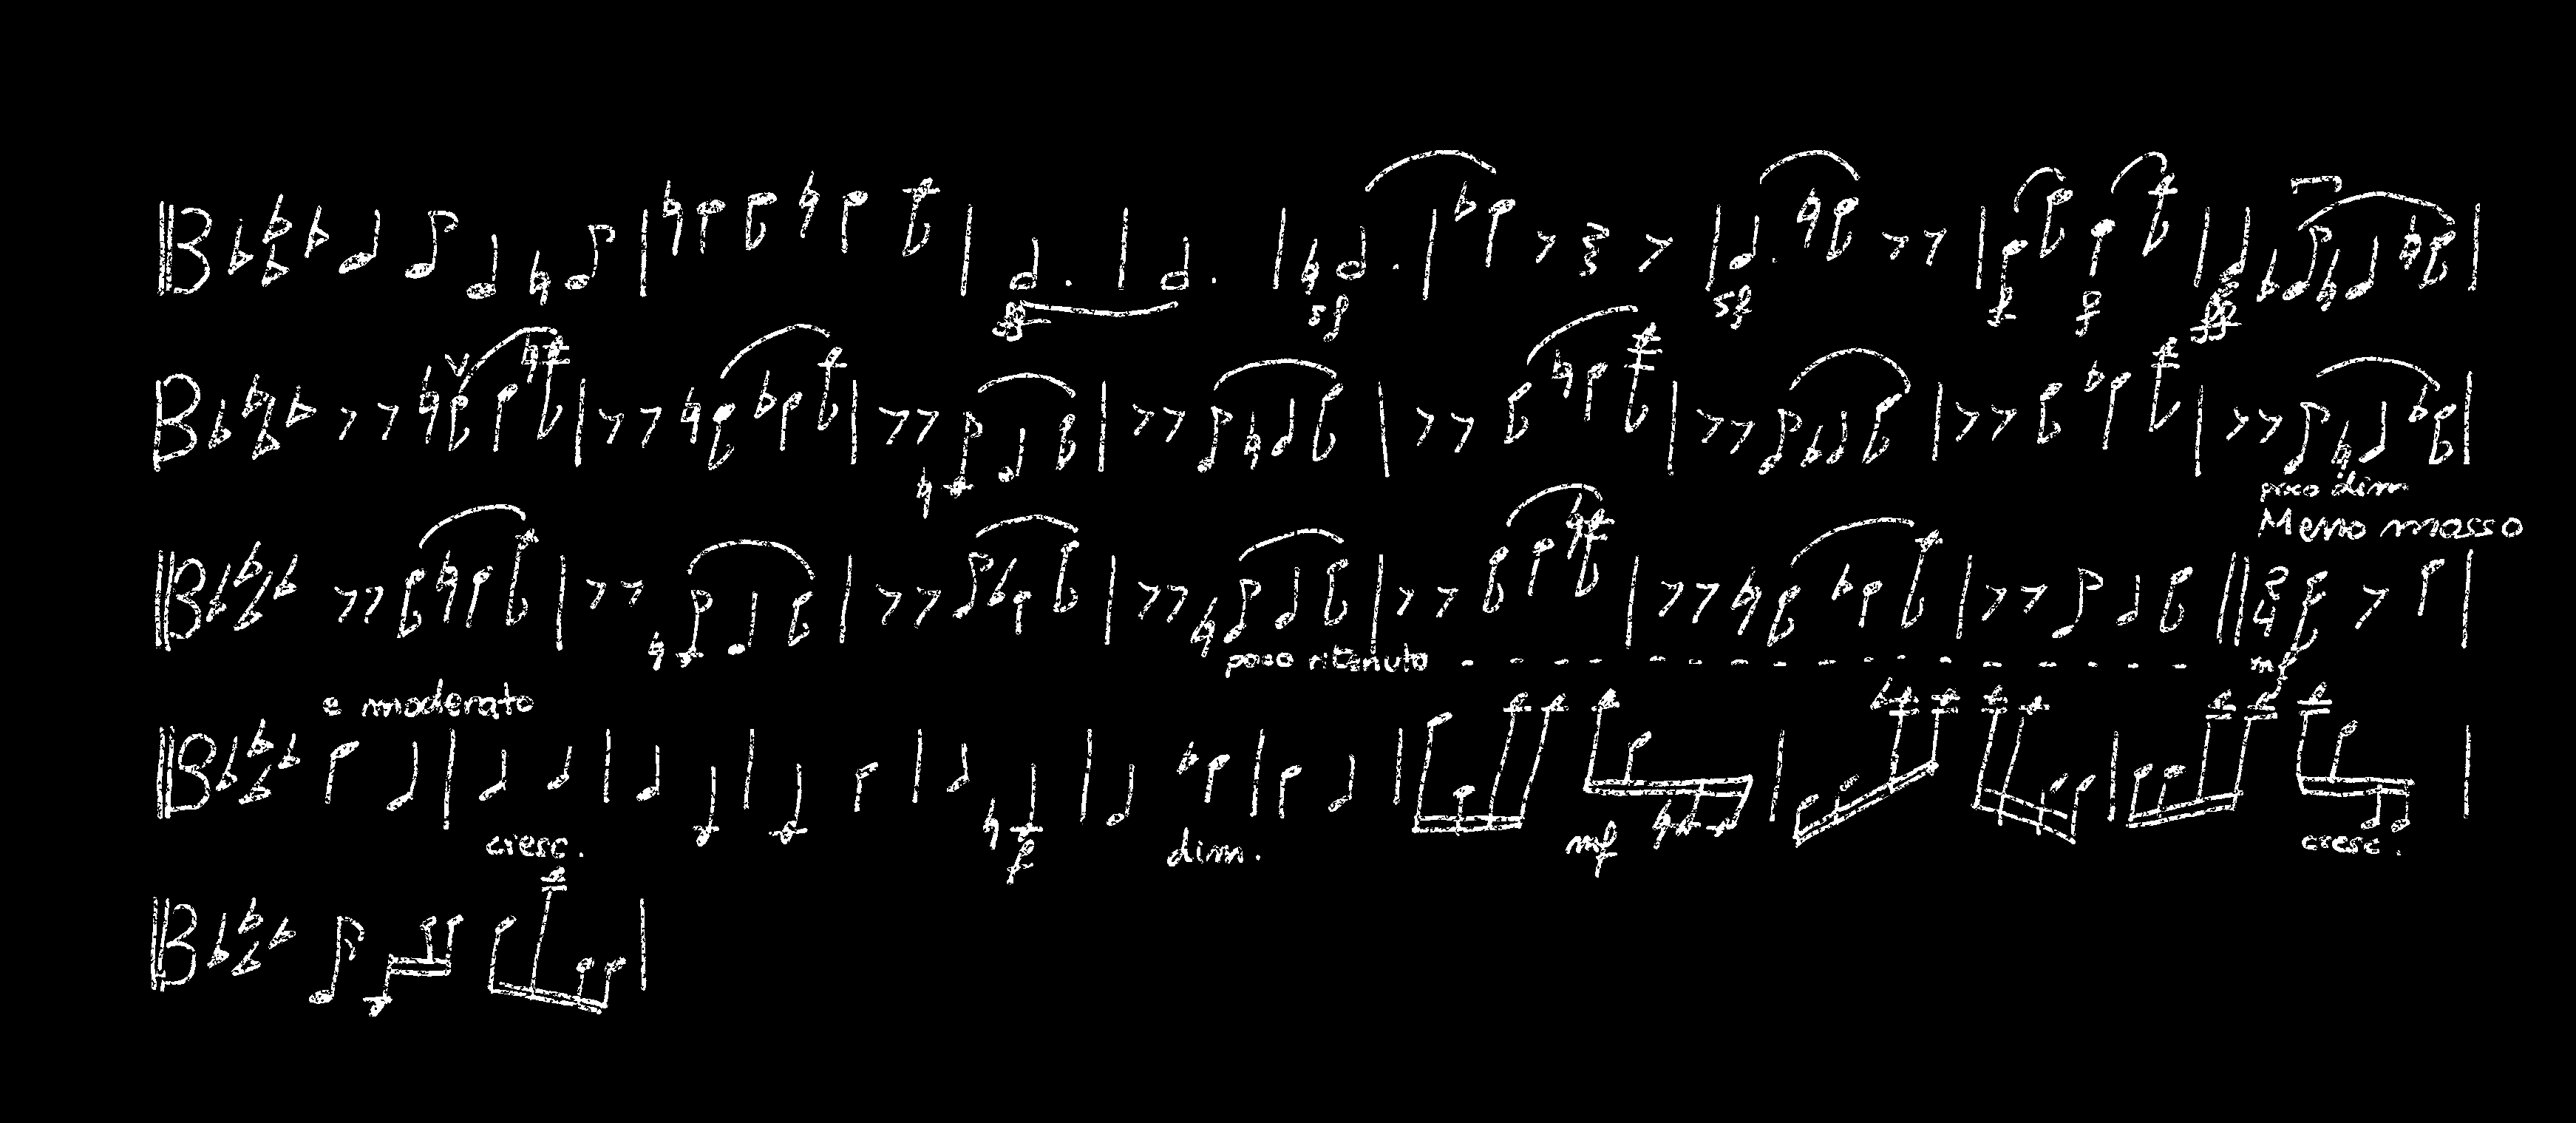 sf sf f f ff
poco dim
Meno mosso
poco ritenuto mf
e moderato
cresc. f dim. mf cresc.